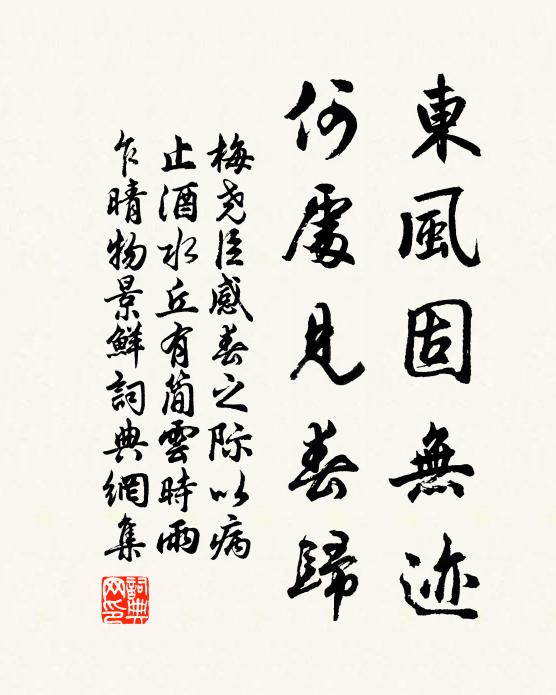 東風固無迹
何處見春歸
梅尧臣感春之际以病
止酒水丘有简雲時雨
乍晴物景鮮詞典網集
詞典网印